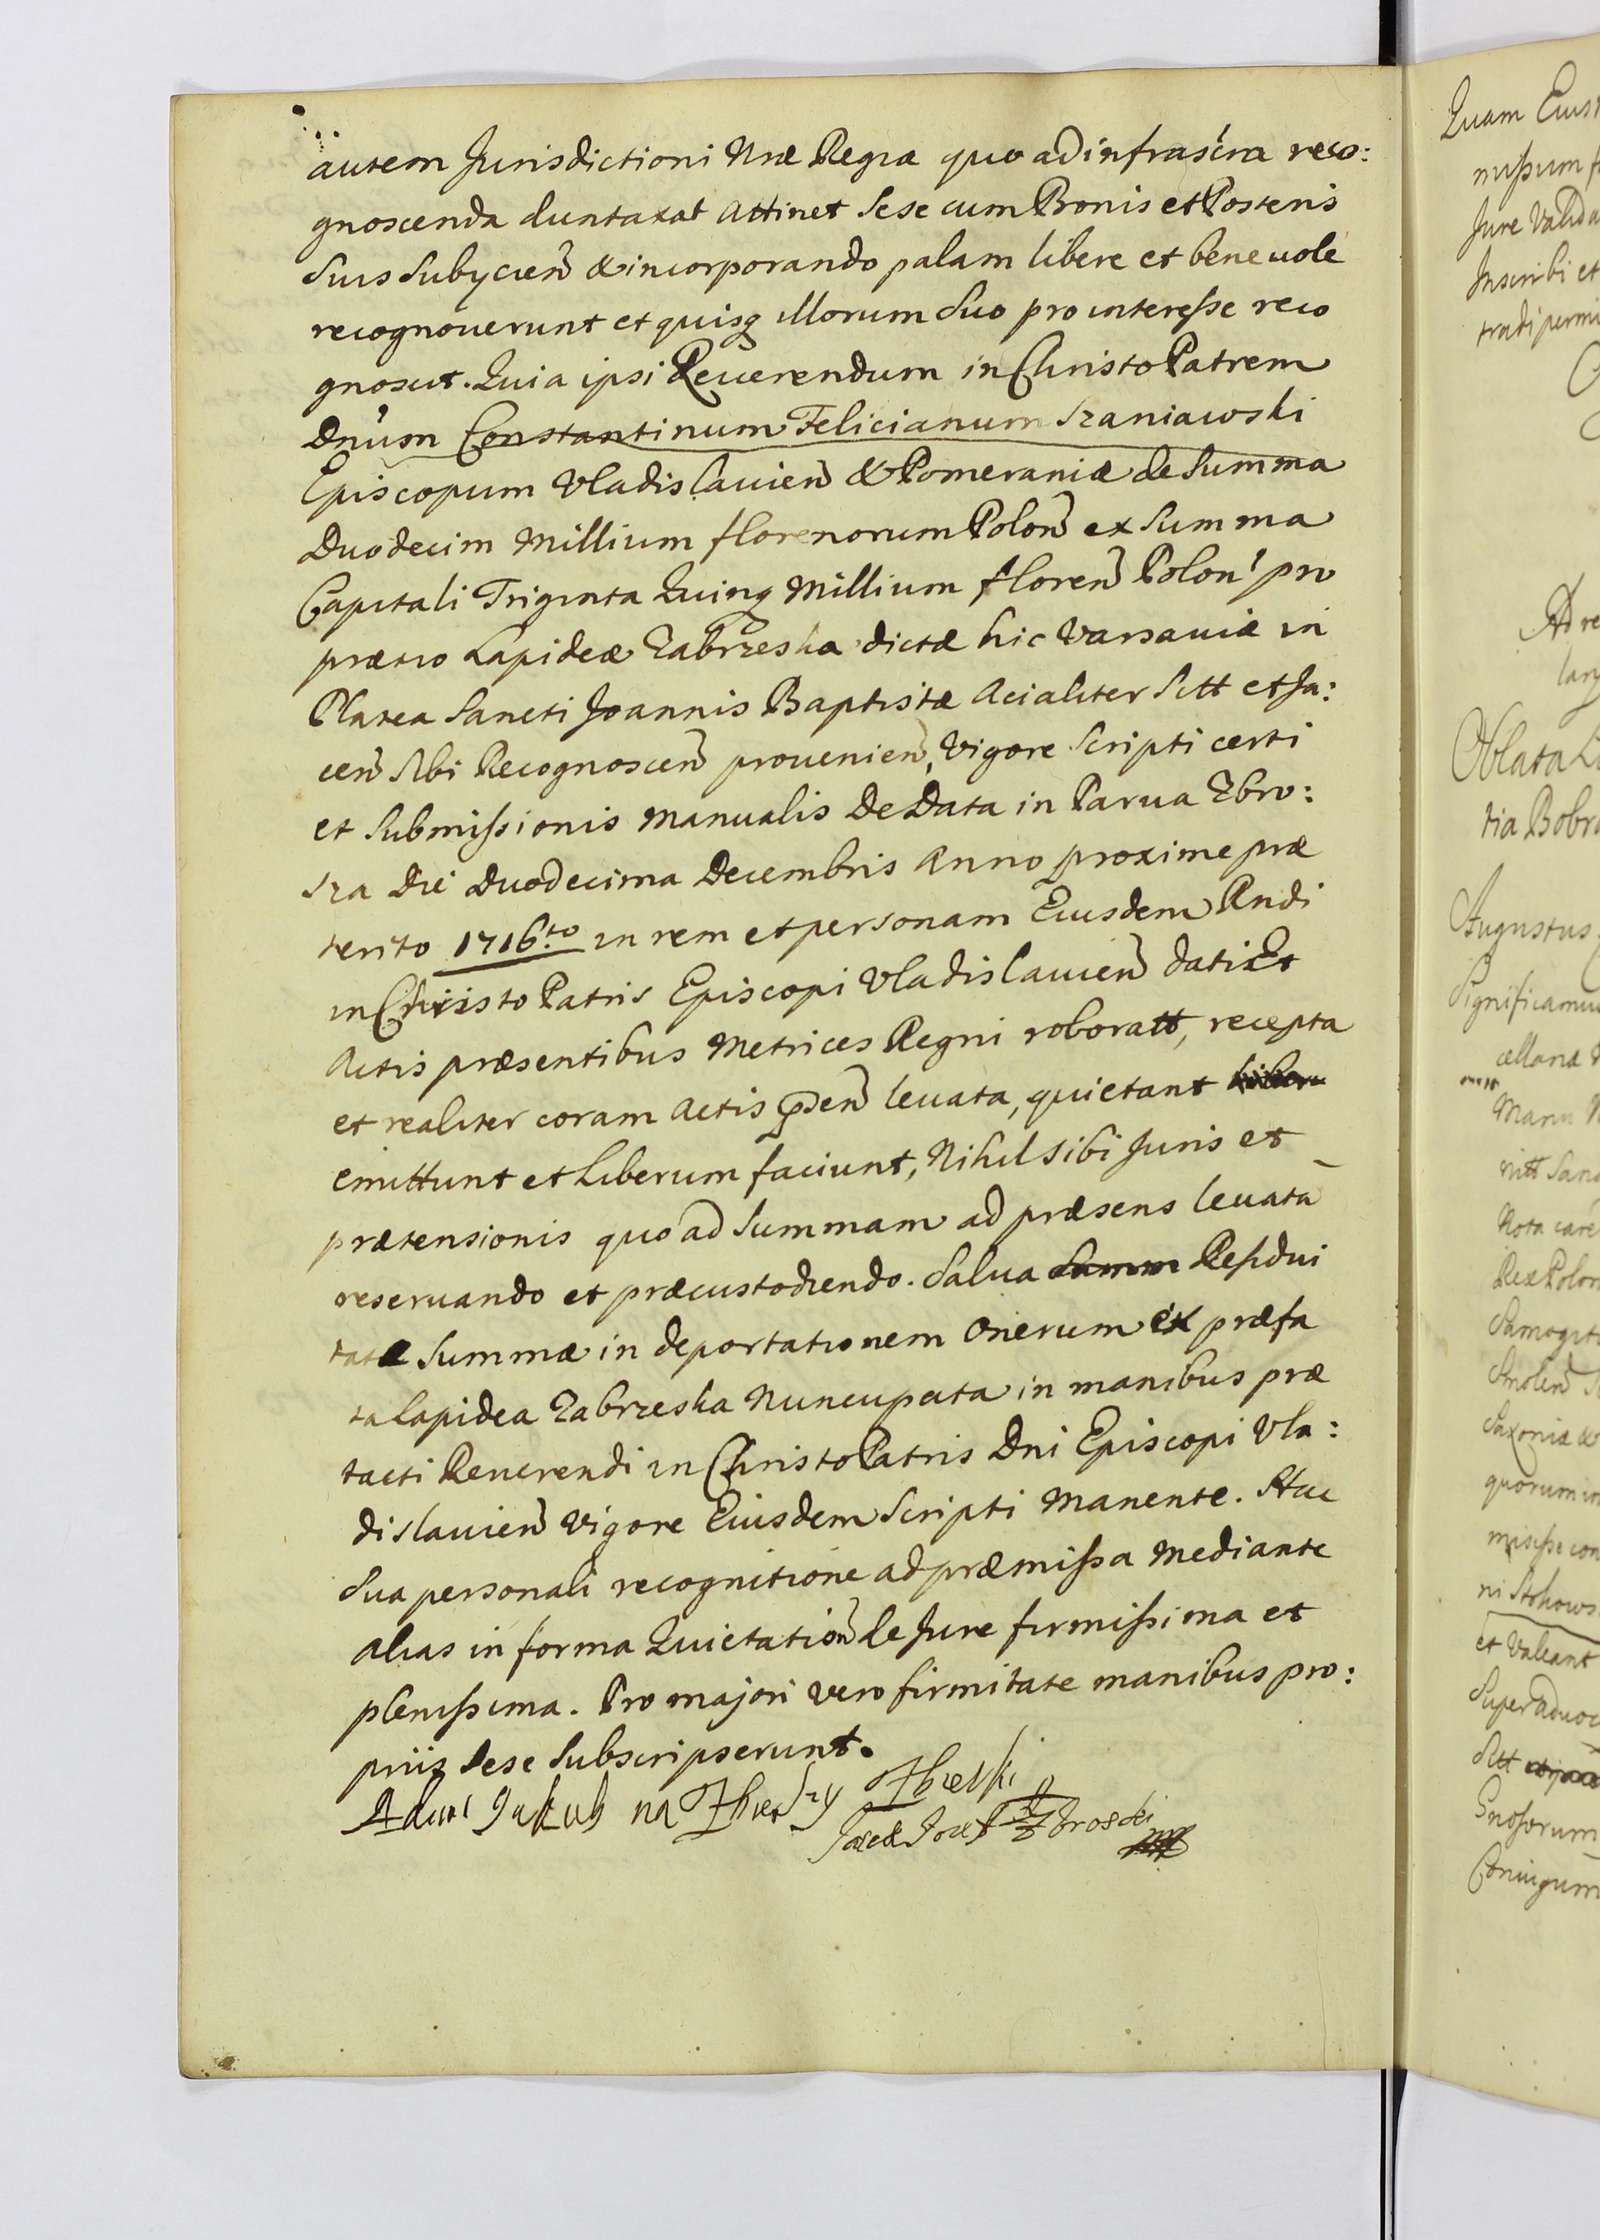 autem Jurisdictioni Nræ Regiæ quo ad infrascra reco:
gnoscenda duntaxat attinet Sese cum Bonis et Posteris
Suis Subycien̄ & incorporando palam libere et beneuole
recognouerunt et quisq illorum Suo pro interesse reco
gnoscit. Quia ipsi Reuerendum in Christo Patrem
Dnum Constantinum Felicianum Szaniawski
Episcopum Vladislauien̄ & Pomeraniæ de Summa
Duodecim Millium florenorum Polon̄ ex Summa
Capitali Triginta Quinq Millium floren̄ Polon̄ pro
prætio Lapideæ Zabrzeska dictæ hic Varsauiæ in
Platea Sancti Joannis Baptistæ Acialiter Sitt et Ja:
cen̄ Sibi Recognoscen̄ prouenien̄, Vigore Scripti certi
et Submissionis Manualis De Data in Parua Zbro:
sza Die Duodecima Decembris Anno proxime præ
terito 1716.to in rem et personam Eiusdem Rndi
in Christo Patris Episcopi Vladislauien̄ dati Et
Actis præsentibus Metrices Regni roboratt, recepta
et realiter coram Actis p̄sen̄ leuata, quietant
emittunt et Liberum faciunt, Nihil sibi Juris et
prætensionis quo ad Summam ad præsens leuata
reseruando et præcustodiendo. Salua Summ Residui
tatæ Summæ in deportationem Onerum ex præfa
ta Lapidea Zabrzeska Nuncupata in manibus præ
tacti Reuerendi in Christo Patris Dni Episcopi Vla:
dislauien̄ Vigore Eiusdem Scripti Manente. Hac
Sua personali recognitione ad præmissa Mediante
alias in forma Quietation̄ de Jure firmissima et
plenissima. Pro majori vero firmitate manibus pro:
priis Sese Subscripserunt.
Adam Jakub na
Quam
Jure Valida
Inscribi et
Oblata
tia
Augustus
Significamus
Manu
Nota
Rex Polon
Samogit
Smolen̄
Saxoniæ &
quorum
misisse con
et Valeant
Super
Sitt
Gnosorum
Coniugum